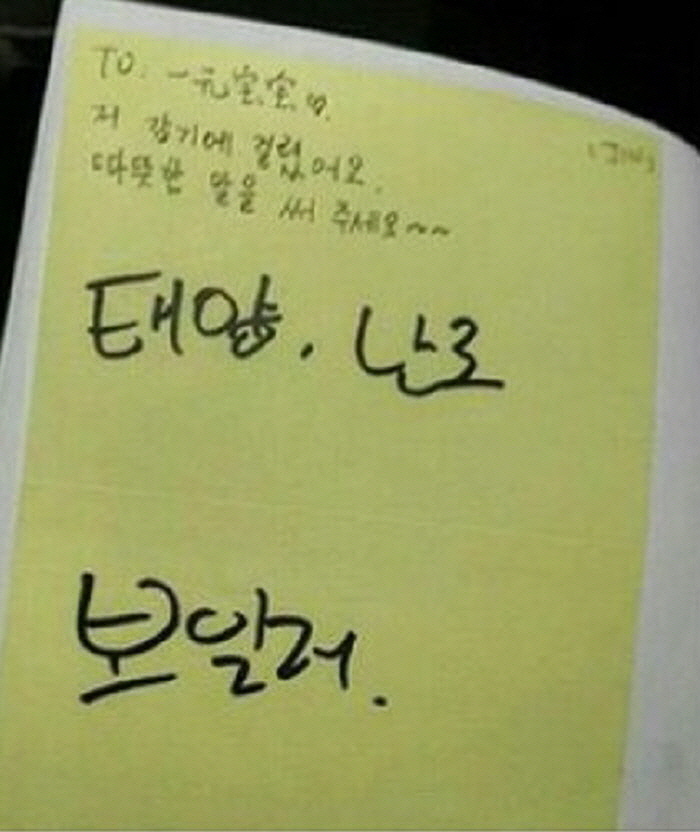 TO. 一元宝宝♡.
저 감기에 걸렸어요.
따뜻한 말을 써 주세요~~
태양. 난로
보일러.